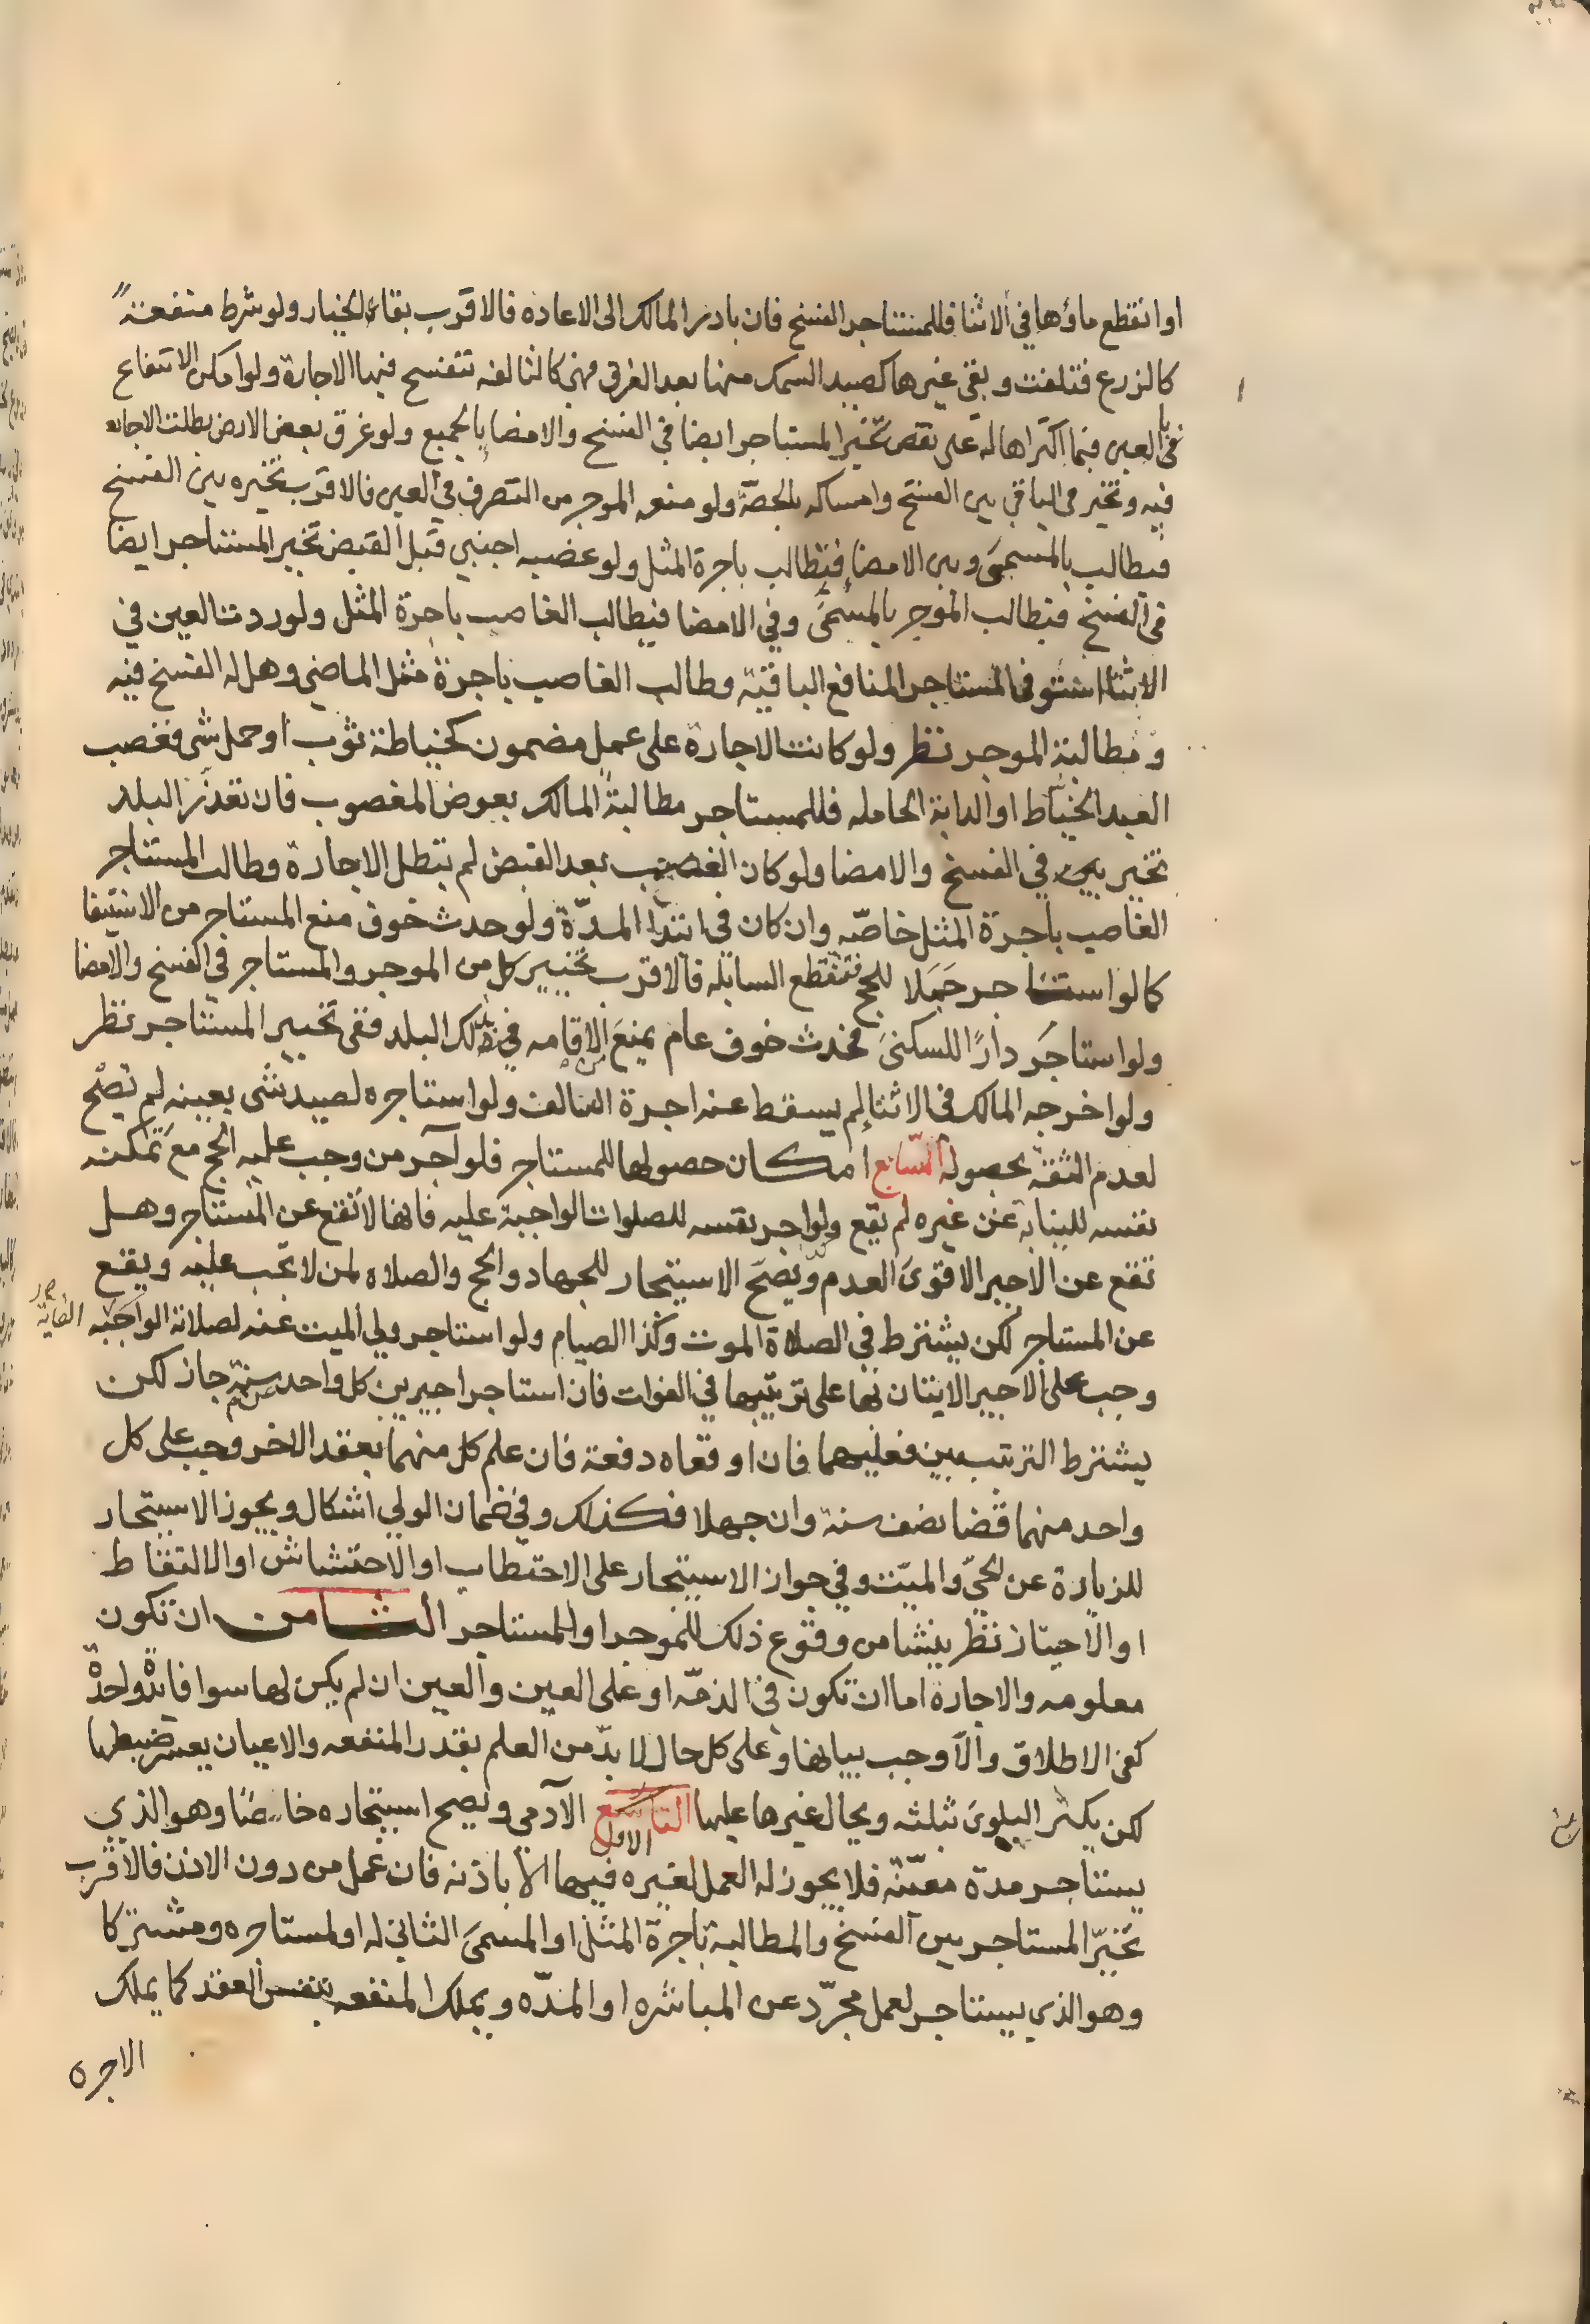 او انقطع ماؤها في الاثنا فللمستاجر الفسخ فان بادر المالك الى الاعاده فالاقرب بقاء الخيار ولو شرط منفعة
كالزرع فتلفت وبقى غيرها كصيد السمك منها بعد الغرق فهى كالتالفه تنفسخ فيها الاجارة ولو امكن الانتفاع
بالعين فيما اكتراها له على نقص تخير المستاجر ايضا في الفسخ والامضا بالجميع ولو غرق بعض الارض بطلت الاجاره
فيه وتخير في الباقي بين الفسخ وامساكه بالحصة ولو منعه الموجر من التصرف في العين فالاقرب تخيره بين الفسخ
فيطالب بالمسمى وبين الامضا فيطالب باجرة المثل ولو غصبه اجنبي قبل القبض تخير المستاجر ايضا
في الفسخ فيطالب الموجر بالمسمى وفي الامضا فيطالب الغاصب باجرة المثل ولو ردت العين في
الاثنا استوفى المستاجر المنافع الباقية وطالب الغاصب باجرة مثل الماضي وهل له الفسخ فيه
ومطالبة الموجر نظر ولو كانت الاجارة على عمل مضمون كخياطة ثوب او حمل شى فغصب
العبد الخياط او الدابة الحامله فللمستاجر مطالبة المالك بعوض المغصوب فان تعذر البدل
تخير بين في الفسخ والامضا ولو كان الغصب بعد القبض لم تبطل الاجارة وطالب المستاجر
الغاصب باجرة المثل خاصه وان كان في ابتدا المدة ولو حدث خوف منع المستاجر من الاستيفا
كما لو استاجر جملا للحج فتنقطع السابله فالاقرب تخيير كل من الموجر والمستاجر في الفسخ والامضا
ولو استاجر دارا للسكنى فحدث خوف عام يمنع الاقامه في ذلك البلد ففى تخيير المستاجر نظر
ولو اخرجه المالك في الاثنا لم يسقط عنه اجرة السالف ولو استاجره لصيد شى بعينه لم تصح
لعدم الثقة بحصوله السابع امكان حصولها للمستاجر فلو آجر من وجب عليه الحج مع تمكنه
نفسه للنيابة عن غيره لم يقع ولو اجر نفسه للصلوات الواجبة عليه فانها لا تقع عن المستاجر وهل
تقع عن الاجير الاقوى العدم ويصح الاستيجار للجهاد والحج والصلاه لمن لا تجب عليه ويقع
عن المستاجر لكن يشترط في الصلاة الموت وكذا الصيام ولو استاجر ولي الميت عنه لصلاته الواجبه الفايتة
وجب على الاجير الاتيان بها على ترتيبها في الفوات فان استاجر اجيرين كل واحد عن سنة جاز لكن
يشترط الترتيب بين فعليهما فان اوقعاه دفعة فان علم كل منهما بعقد الاخر وجب على كل
واحد منهما قضا نصف سنة وان جهلا فكذلك وفي ضمان الولي اشكال ويجوز الاستيجار
للزيارة عن الحي والميت وفي جواز الاستيجار على الاحتطاب او الاحتشاش او الالتقاط
او الاحتياز نظر ينشا من وقوع ذلك للموجر او المستاجر الثامن ان تكون
معلومه والاجارة اما ان تكون في الذمه او على العين والعين ان لم يكن لها سوا فائدة واحدة
كفى الاطلاق والا وجب بيانها وعلى كل حال لا بد من العلم بقدر المنفعه والاعيان يعسر ضبطها
لكن يكثر البلوى بثلثه ويحال غيرها عليها التاسع الاول الآدمي ويصح استيجاره خاصا وهو الذي
يستاجر مدة معينة فلا يجوز له العمل لغيره فيها الا باذنه فان عمل من دون الاذن فالاقرب
تخير المستاجر بين الفسخ والمطالبة باجرة المثل او المسمى الثاني له او لمستاجره ومشتركا
وهو الذي يستاجر لعمل مجرد عن المباشره او المده ويملك المنفعه بنفس العقد كما يملك
الاجره